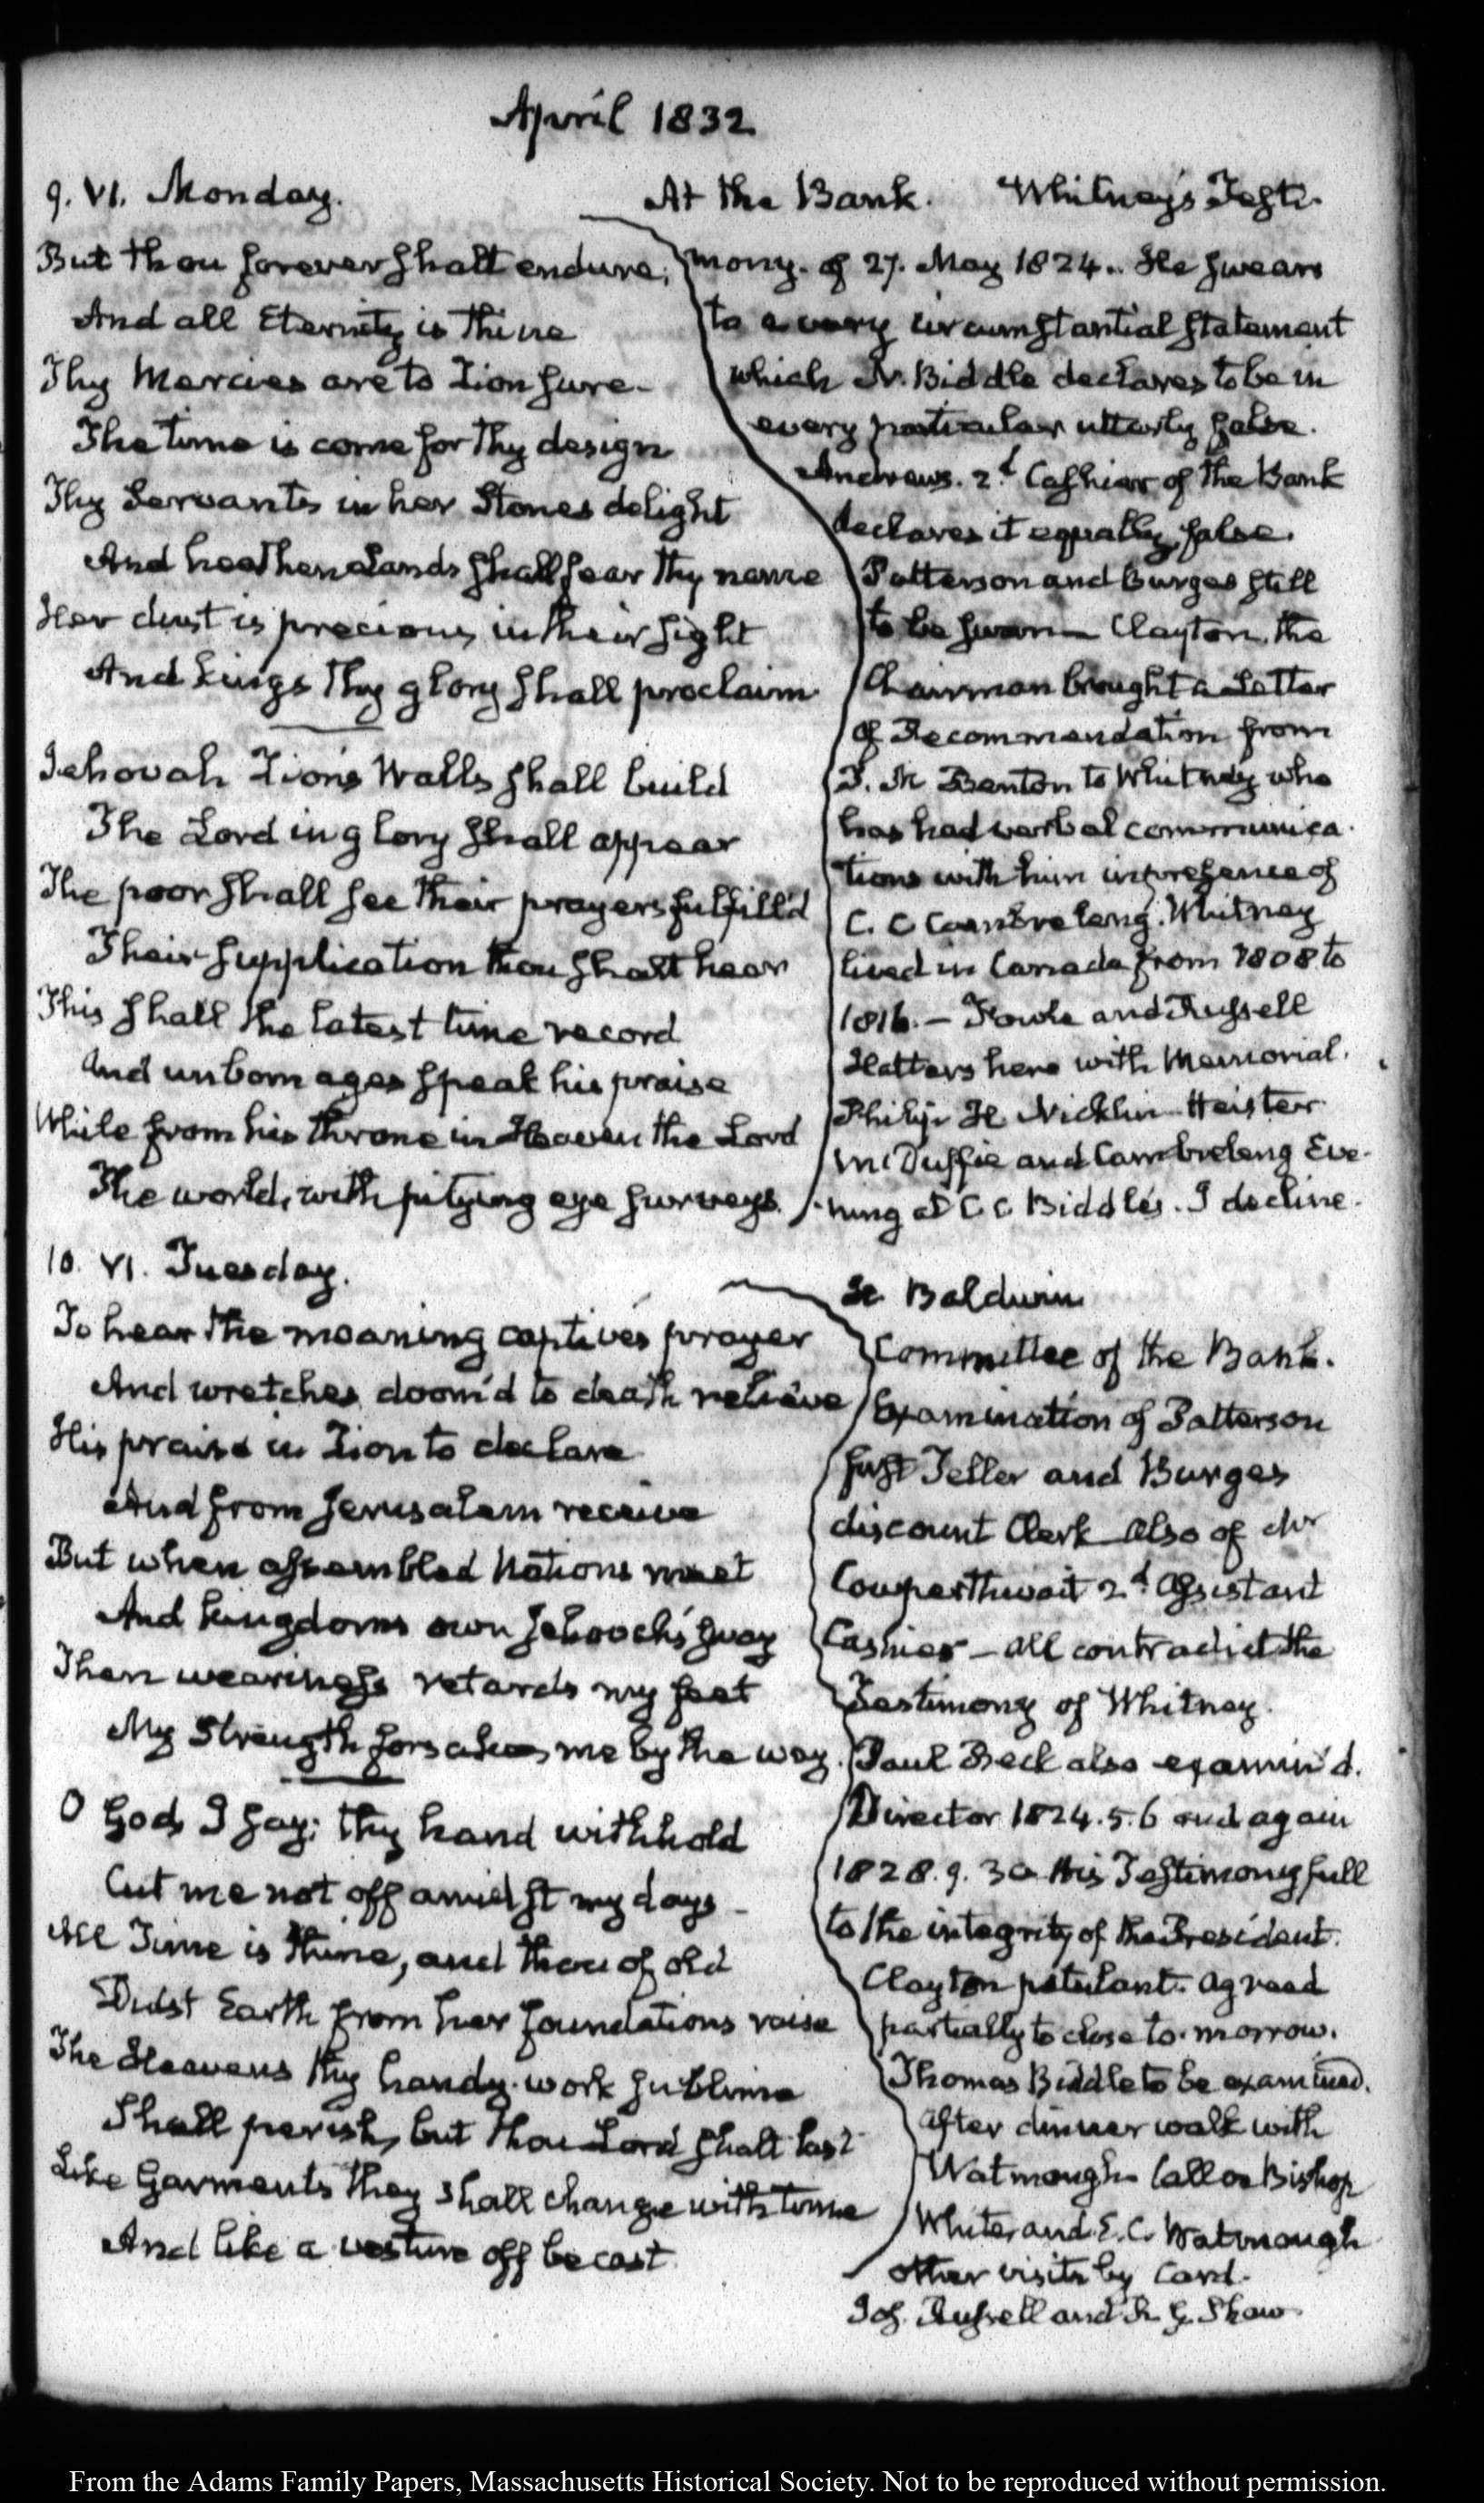 April 1832
9. VI. Monday.
But thou forever shalt endure;
And all Eternity is thine
Thy Mercies are to Zion sure.
The time is come for thy design
Thy Servants in her Stones delight
And heathen Lands shall fear thy name
Her dust is precious in their sight
And Kings thy glory shall proclaim
Jehovah Zion's Walls shall build
The Lord in glory shall appear
The poor shall see their prayers fulfill'd
Their supplication thou shalt hear
This shall the latest time record
And unborn ages speak his praise
While from his throne in Heaven the Lord
The world, with pitying eye surveys.
At the Bank. Whitney's Testi-
mony. of 27. May 1824. He swears
to a very circumstantial statement
which N. Biddle declares to be in
every particular utterly false.
Andrews. 2d Cashier of the Bank
declares it equally false.
Patterson and Burges still
to be sworn — Clayton, the
Chairman brought a Letter
of Recommendation from
T. H. Benton to Whitney who
has had verbal communica-
tions with him in presence of
C. C Cambreleng. Whitney
lived in Canada from 1808 to
1816. — Fowle and Russell
Hatters here with Memorial.
Philip H Nicklin Heister
McDuffie and Cambreleng Eve-
ning at C C Biddle's. I decline.
10. VI. Tuesday.
To hear the moaning captive's prayer
And wretches doom'd to death relieve
His praise in Zion to declare
And from Jerusalem receive
But when assembled Nations meet
And kingdoms own Jehovah's sway
Then weariness retards my feet
My Strength forsakes me by the way.
O God, I say; thy hand withhold
Cut me not off amidst my days
All Time is thine, and thou of old
Didst Earth from her foundations raise
The Heavens thy handy-work sublime
Shall perish, but thou Lord shalt last
Like Garments they shall change with time
And like a vesture off be cast
H Baldwin
Committee of the Bank.
Examination of Patterson
first Teller and Burges
discount Clerk also of Mr
Cowperthwait 2d Assistant
Cashier — all contradict the
Testimony of Whitney.
Paul Beck also examin'd.
Director 1824. 5. 6 and again
1828. 9. 30 His Testimony full
to the integrity of the President.
Clayton petulant. Agreed
partially to close to-morrow.
Thomas Biddle to be examined.
After dinner walk with
Watmough. Call on Bishop
White, and E. C. Watmough
other visits by Card.
Jos. Russell and R. G. Shaw
From the Adams Family Papers, Massachusetts Historical Society. Not to be reproduced without permission.